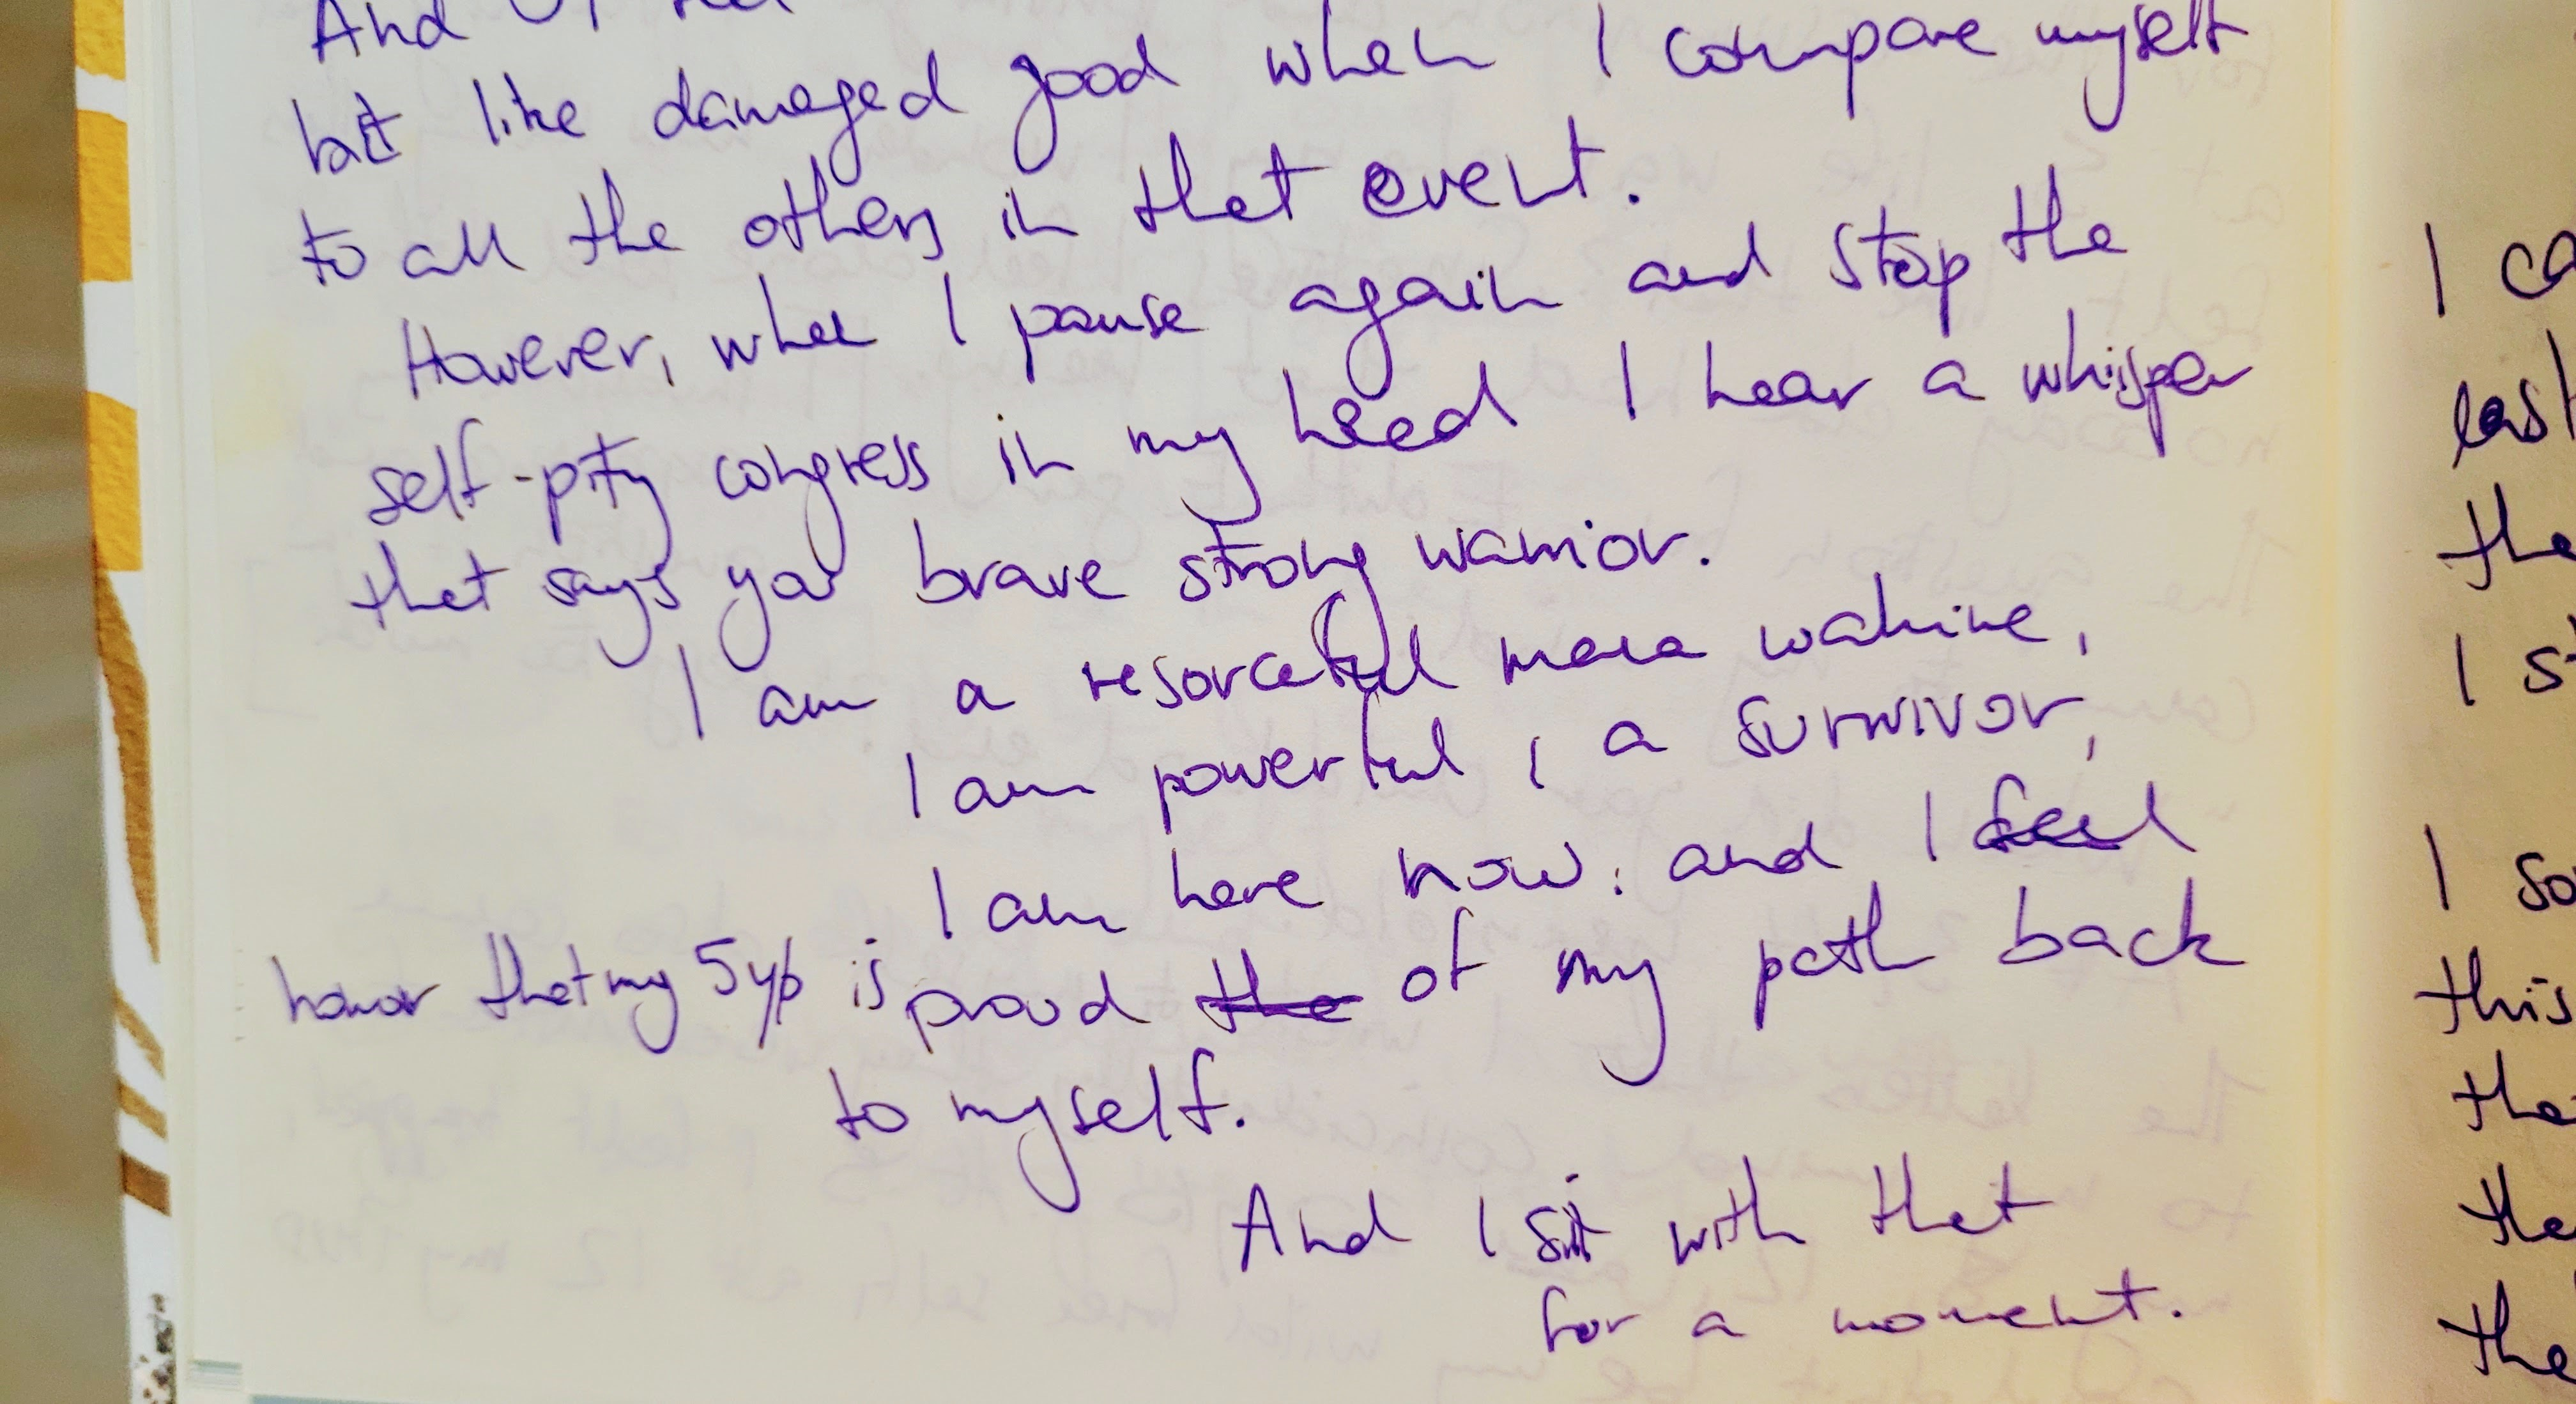 And
bit like damaged good when I compare myself
to all the others in that event.
However, when I pause again and stop the
self-pity congress in my head I hear a whisper
that says you brave strong warrior.
I am a resorceful mana wahine,
I am powerful, a survivor,
I am here now. and I feel
honor that my 5yo is proud the of my path back
to myself.
And I sit with that
for a moment.
I
the
I
I
this
the
the